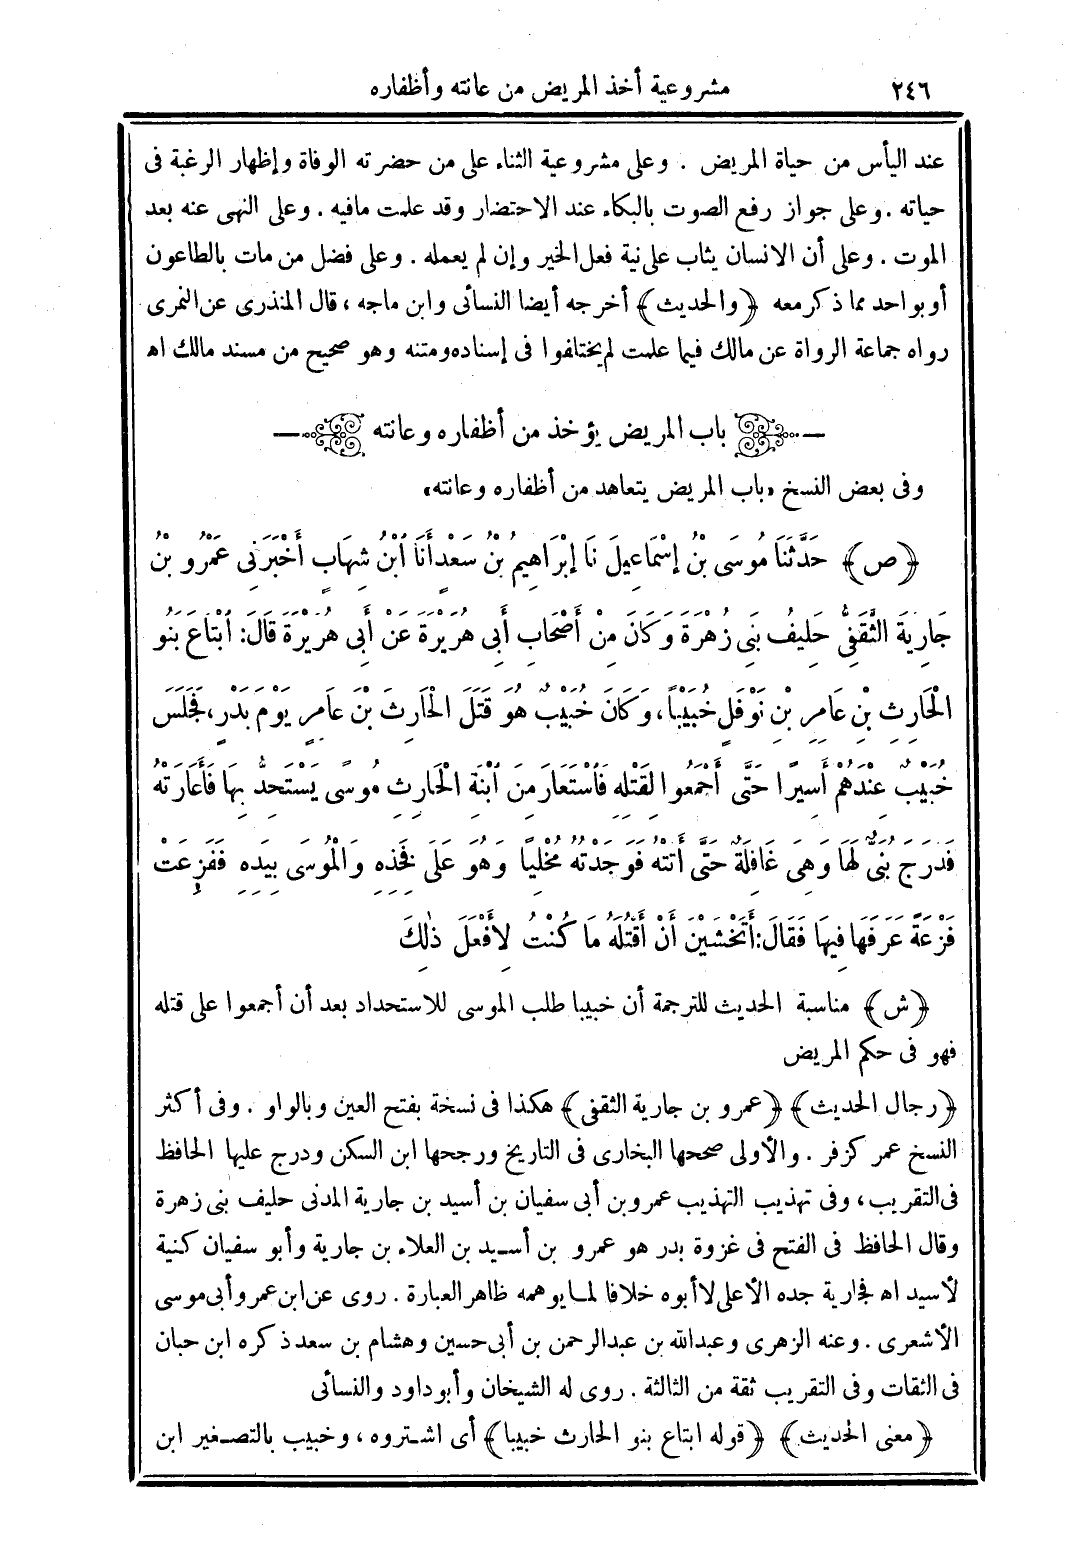 ٢٤٦ مشروعية أخذ المريض من عانته وأظفاره
عند اليأس من حياة المريض . وعلى مشروعية الثناء على من حضرته الوفاة وإظهار الرغبة فى
حياته . وعلى جواز رفع الصوت بالبكاء عند الاحتضار وقد علمت مافيه . وعلى النهى عنه بعد
الموت . وعلى أن الانسان يثاب على نية فعل الخير وإن لم يعمله . وعلى فضل من مات بالطاعون
أو بواحد مما ذكر معه ﴿والحديث﴾ أخرجه أيضا النسائى وابن ماجه ، قال المنذرى عن النمرى
رواه جماعة الرواة عن مالك فيما علمت لم يختلفوا فى إسناده ومتنه وهو صحيح من مسند مالك اه
— باب المريض يؤخذ من أظفاره وعانته —
وفى بعض النسخ «باب المريض يتعاهد من أظفاره وعانته»
﴿ص﴾ حَدَّثَنَا مُوسَى بْنُ إِسْمَاعِيلَ نَا إِبْرَاهِيمُ بْنُ سَعْدٍ أَنَا ابْنُ شِهَابٍ أَخْبَرَنِى عَمْرُو بْنُ
جَارِيَةَ الثَّقَفِىُّ حَلِيفُ بَنِى زُهْرَةَ وَكَانَ مِنْ أَصْحَابِ أَبِى هُرَيْرَةَ عَنْ أَبِى هُرَيْرَةَ قَالَ: ابْتَاعَ بَنُو
الْحَارِثِ بْنِ عَامِرِ بْنِ نَوْفَلٍ خُبَيْبًا، وَكَانَ خُبَيْبٌ هُوَ قَتَلَ الْحَارِثَ بْنَ عَامِرٍ يَوْمَ بَدْرٍ، فَجَلَسَ
خُبَيْبٌ عِنْدَهُمْ أَسِيرًا حَتَّى أَجْمَعُوا لِقَتْلِهِ فَاسْتَعَارَ مِنَ ابْنَةِ الْحَارِثِ مُوسًى يَسْتَحِدُّ بِهَا فَأَعَارَتْهُ
فَدَرَجَ بُنَىٌّ لَهَا وَهِىَ غَافِلَةٌ حَتَّى أَتَتْهُ فَوَجَدَتْهُ مُخْلِيًا وَهُوَ عَلَى فَخِذِهِ وَالْمُوسَى بِيَدِهِ فَفَزِعَتْ
فَزْعَةً عَرَفَهَا فِيهَا فَقَالَ: أَتَخْشَيْنَ أَنْ أَقْتُلَهُ مَا كُنْتُ لِأَفْعَلَ ذٰلِكَ
﴿ش﴾ مناسبة الحديث للترجمة أن خبيبا طلب الموسى للاستحداد بعد أن أجمعوا على قتله
فهو فى حكم المريض
﴿رجال الحديث﴾ ﴿عمرو بن جارية الثقفى﴾ هكذا فى نسخة بفتح العين وبالواو . وفى أكثر
النسخ عمر كزفر . والأولى صححها البخارى فى التاريخ ورجحها ابن السكن ودرج عليها الحافظ
فى التقريب ، وفى تهذيب التهذيب عمرو بن أبى سفيان بن أسيد بن جارية المدنى حليف بنى زهرة
وقال الحافظ فى الفتح فى غزوة بدر هو عمرو بن أسيد بن العلاء بن جارية وأبو سفيان كنية
لأسيد اه فجارية جده الأعلى لا أبوه خلافا لما يوهمه ظاهر العبارة . روى عن ابن عمر وأبى موسى
الأشعرى . وعنه الزهرى وعبدالله بن عبدالرحمن بن أبى حسين وهشام بن سعد ذكره ابن حبان
فى الثقات وفى التقريب ثقة من الثالثة . روى له الشيخان وأبوداود والنسائى
﴿معنى الحديث﴾ ﴿قوله ابتاع بنو الحارث خبيبا﴾ أى اشتروه ، وخبيب بالتصغير ابن